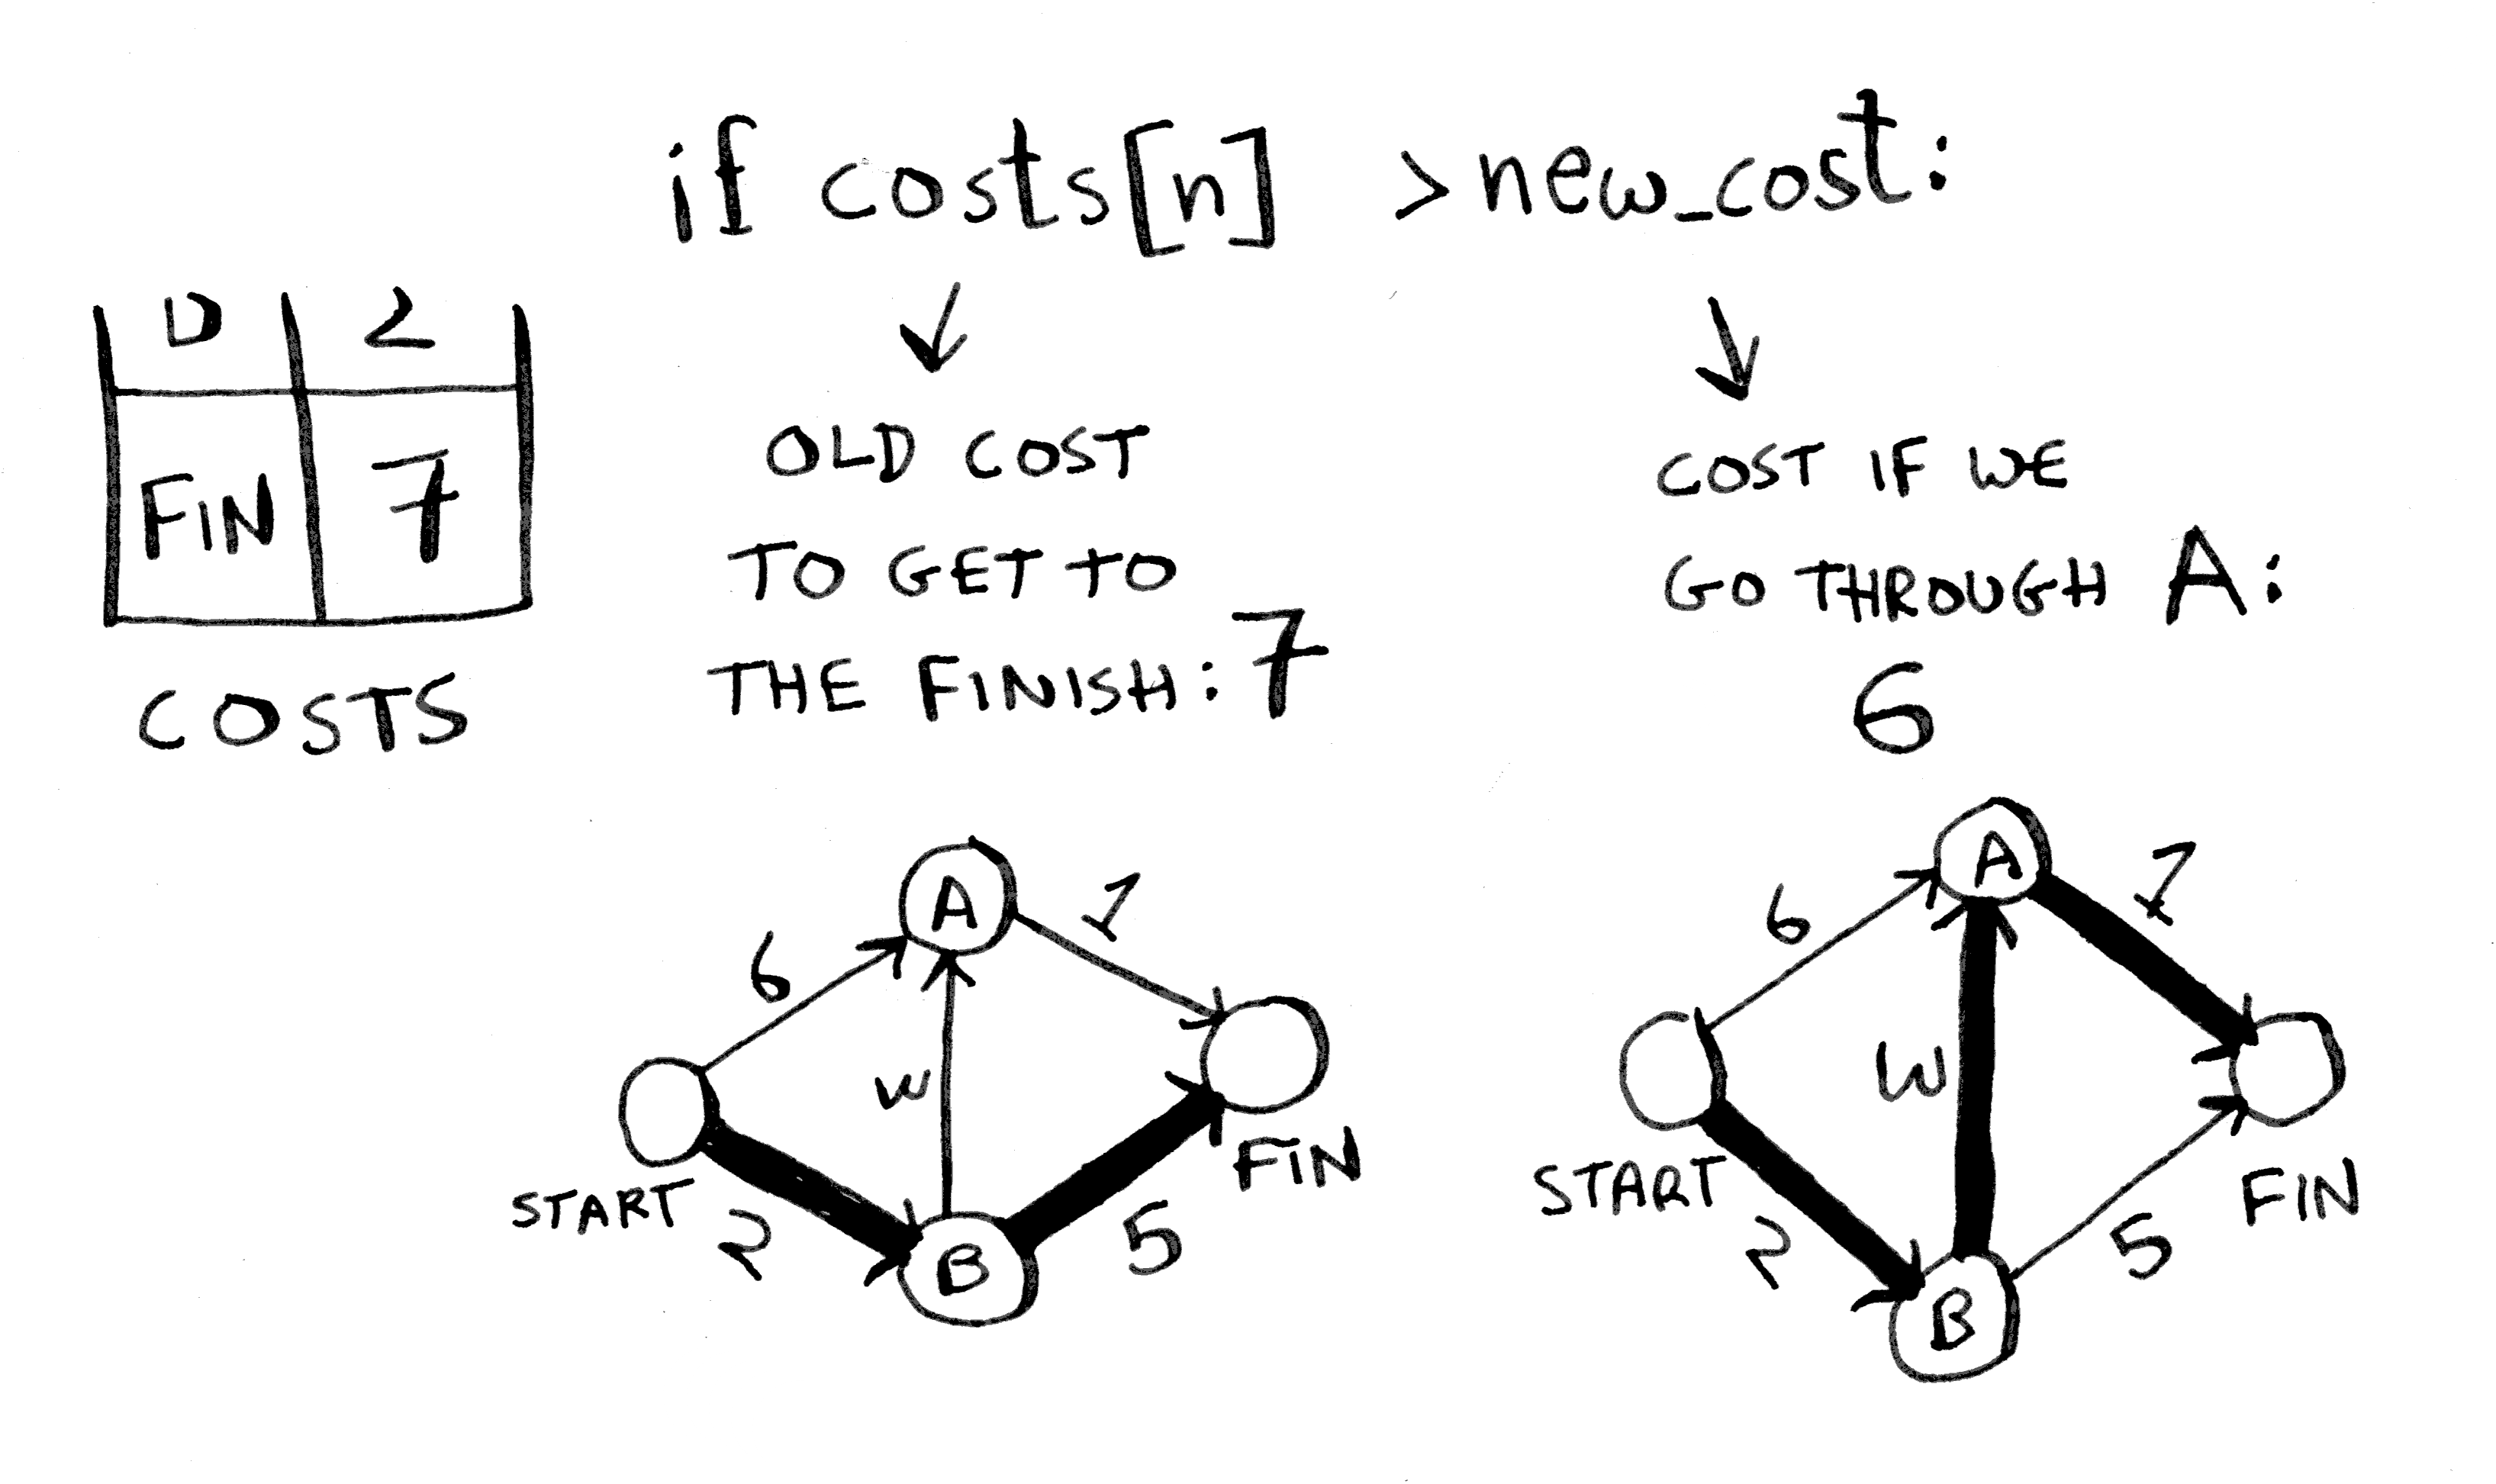 if costs[n] > new_cost:
2
FIN 7
COSTS
OLD COST
TO GET TO
THE FINISH: 7
COST IF WE
GO THROUGH A:
6
A
1
6
W
START
2
B
5
FIN
A
1
6
W
START
2
B
5
FIN